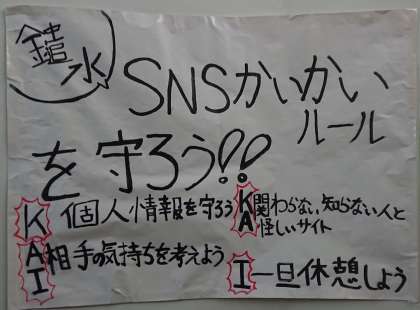 鑓水
SNSかいかい
ルール
を守ろう!!
K 個人情報を守ろう
AI 相手の気持ちを考えよう
KA 関わらない、知らない人と
怪しいサイト
I 一旦休憩しよう